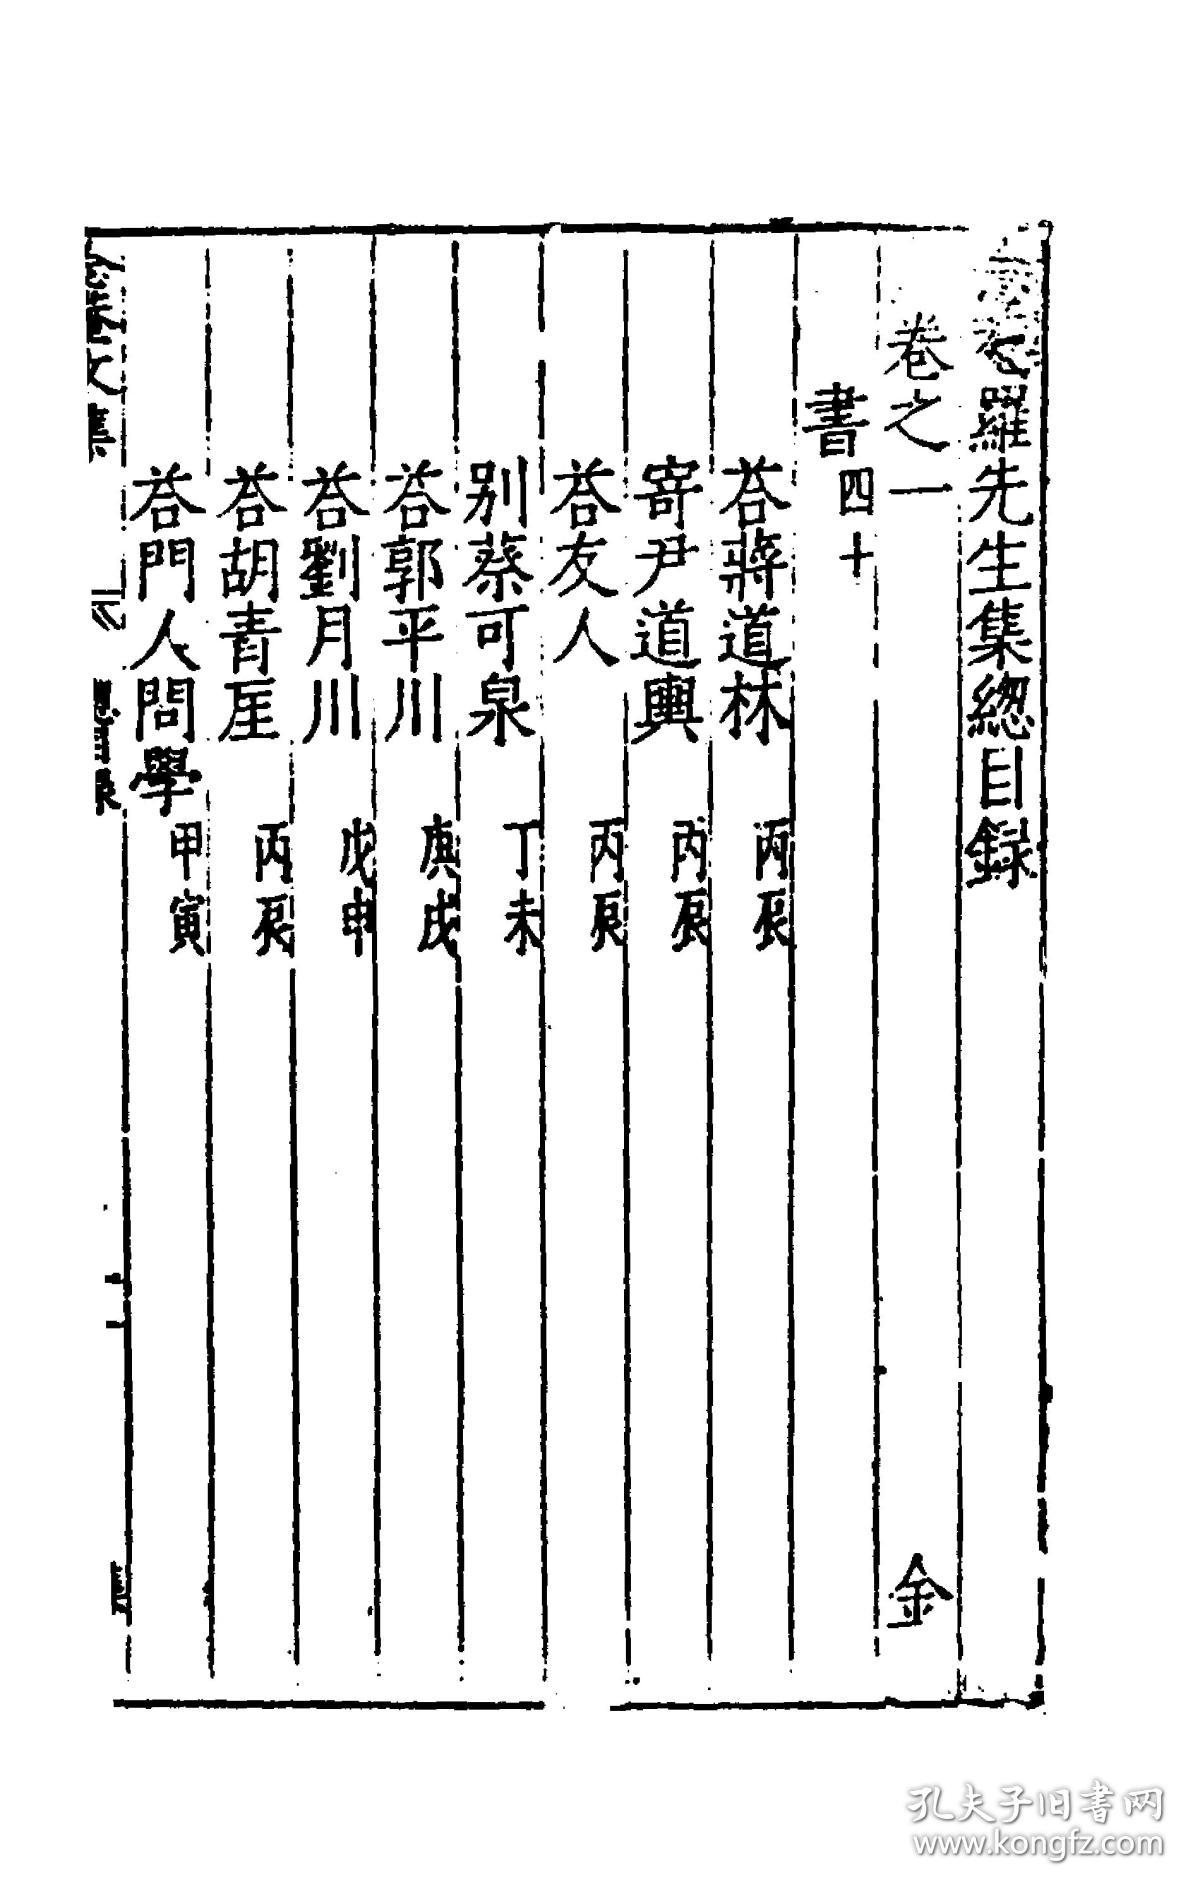 念菴羅先生集總目録
卷之一 金
書四十
荅蔣道林 丙辰
寄尹道輿 丙辰
荅友人 丙辰
别蔡可泉 丁未
荅郭平川 庚戌
荅劉月川 戊申
荅胡青厓 丙辰
荅門人問學 甲寅
孔夫子旧書网
www.kongfz.com